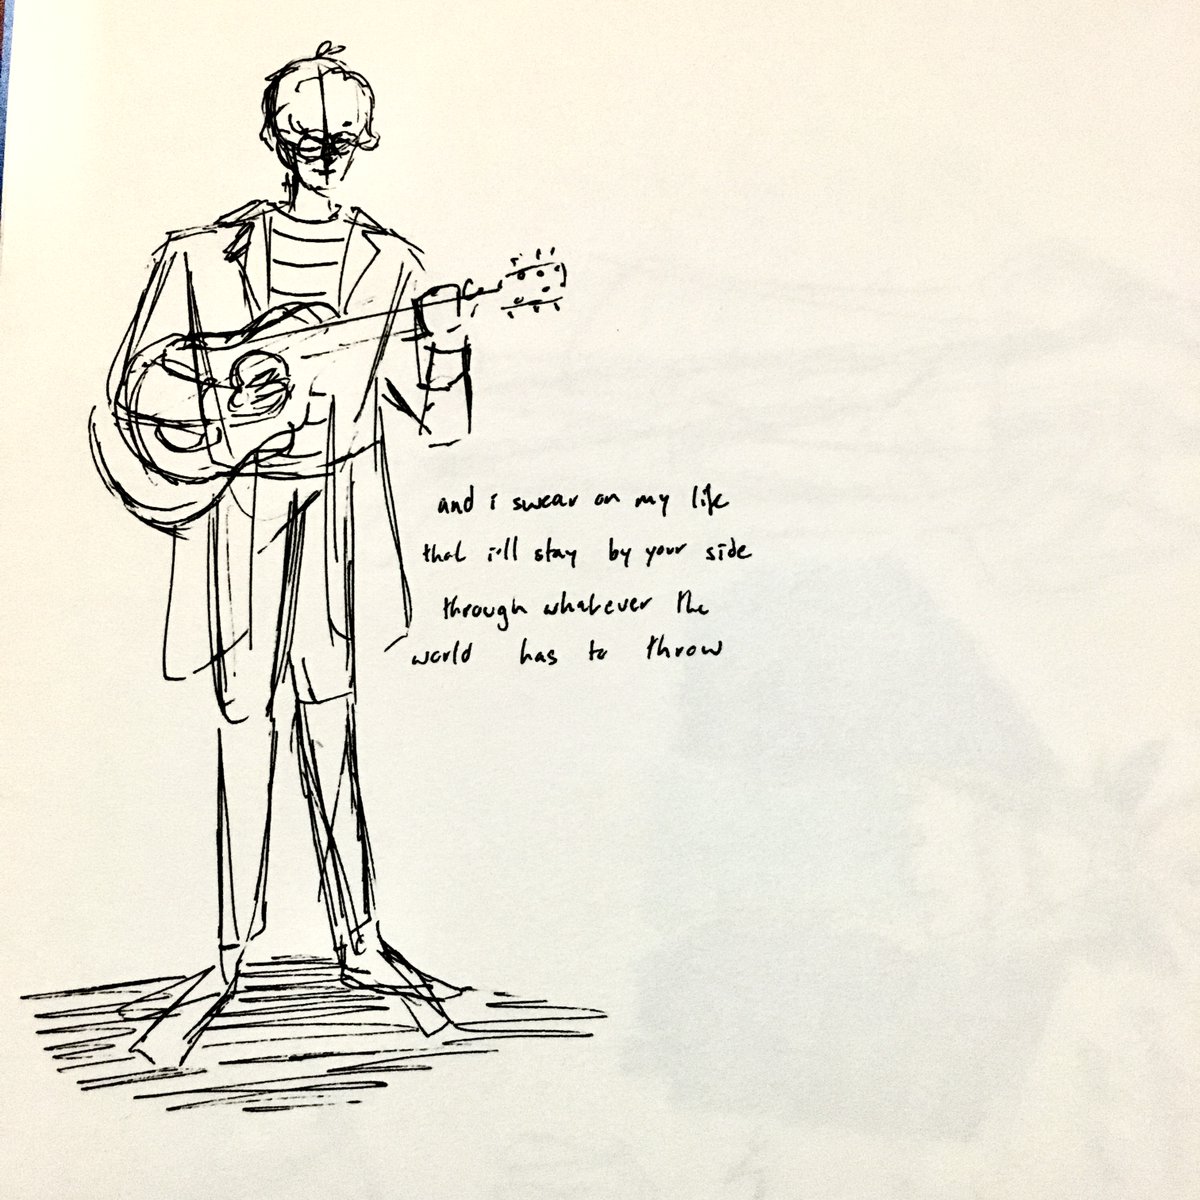 and i swear on my life
that i'll stay by your side
through whatever the
world has to throw